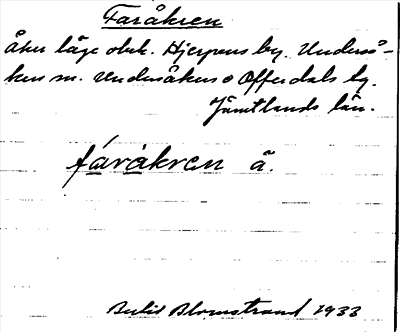 Faråkren
åker läge obek. Hjerpens by. Underså-
kers sn. Undersåkers o Offerdals tg.
Jämtlands län.
fáràkren ã.
Berit Blomstrand 1933